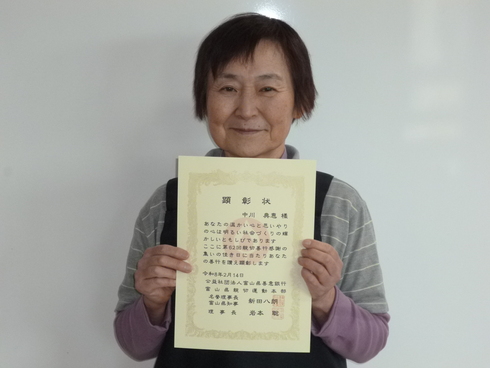 顕彰状
中川 典恵 様
あなたの温かい心と思いやり
の心は明るい社会づくりの輝
かしいともしびであります
ここに第63回親切善行感謝の
集いの佳き日に当たりあなた
の善行を讃え顕彰します
令和6年2月14日
公益社団法人富山県善意銀行
富山県親切運動本部
名誉理事長
富山県知事 新田八朗
理事長 岩本 聡